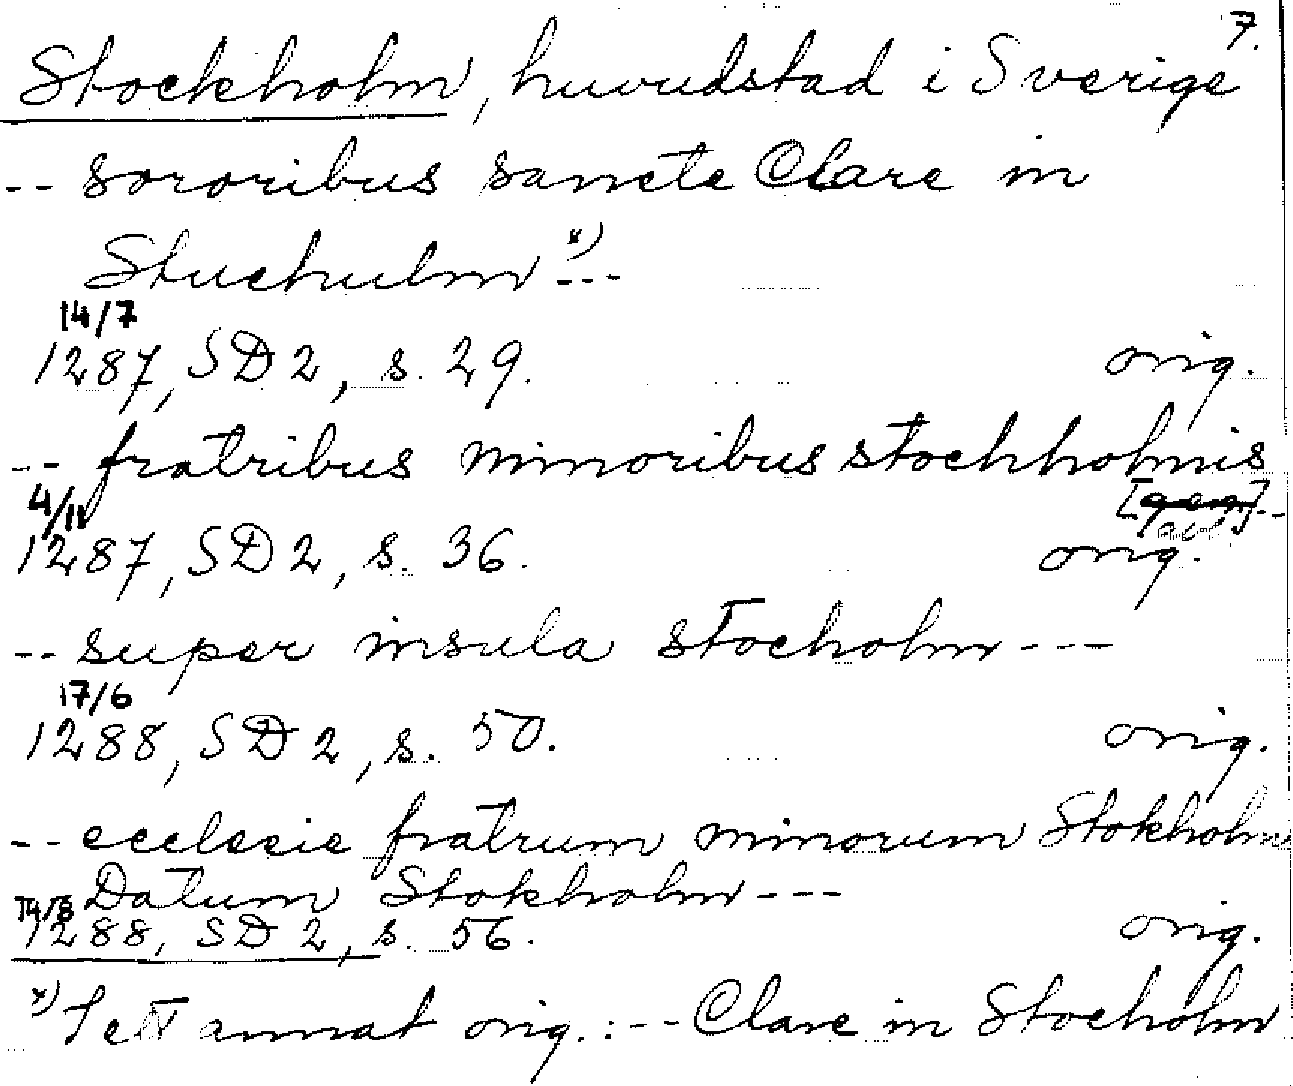 7.
Stockholm, huvudstad i Sverige
-- sororibus sancte Clare in
Stuchulm x) ---
14/7
1287, SD 2, s. 29. orig.
-- fratribus minoribus stochholmis
4/11 [gen]--
1287, SD 2, s. 36. orig.
-- super insula stocholm ---
17/6
1288, SD 2, s. 50. orig.
-- ecclesie fratrum minorum Stokholm
Datum Stokholm ---
14/8
1288, SD 2, s. 56. orig.
x) I ett annat orig.: -- Clare in Stocholm